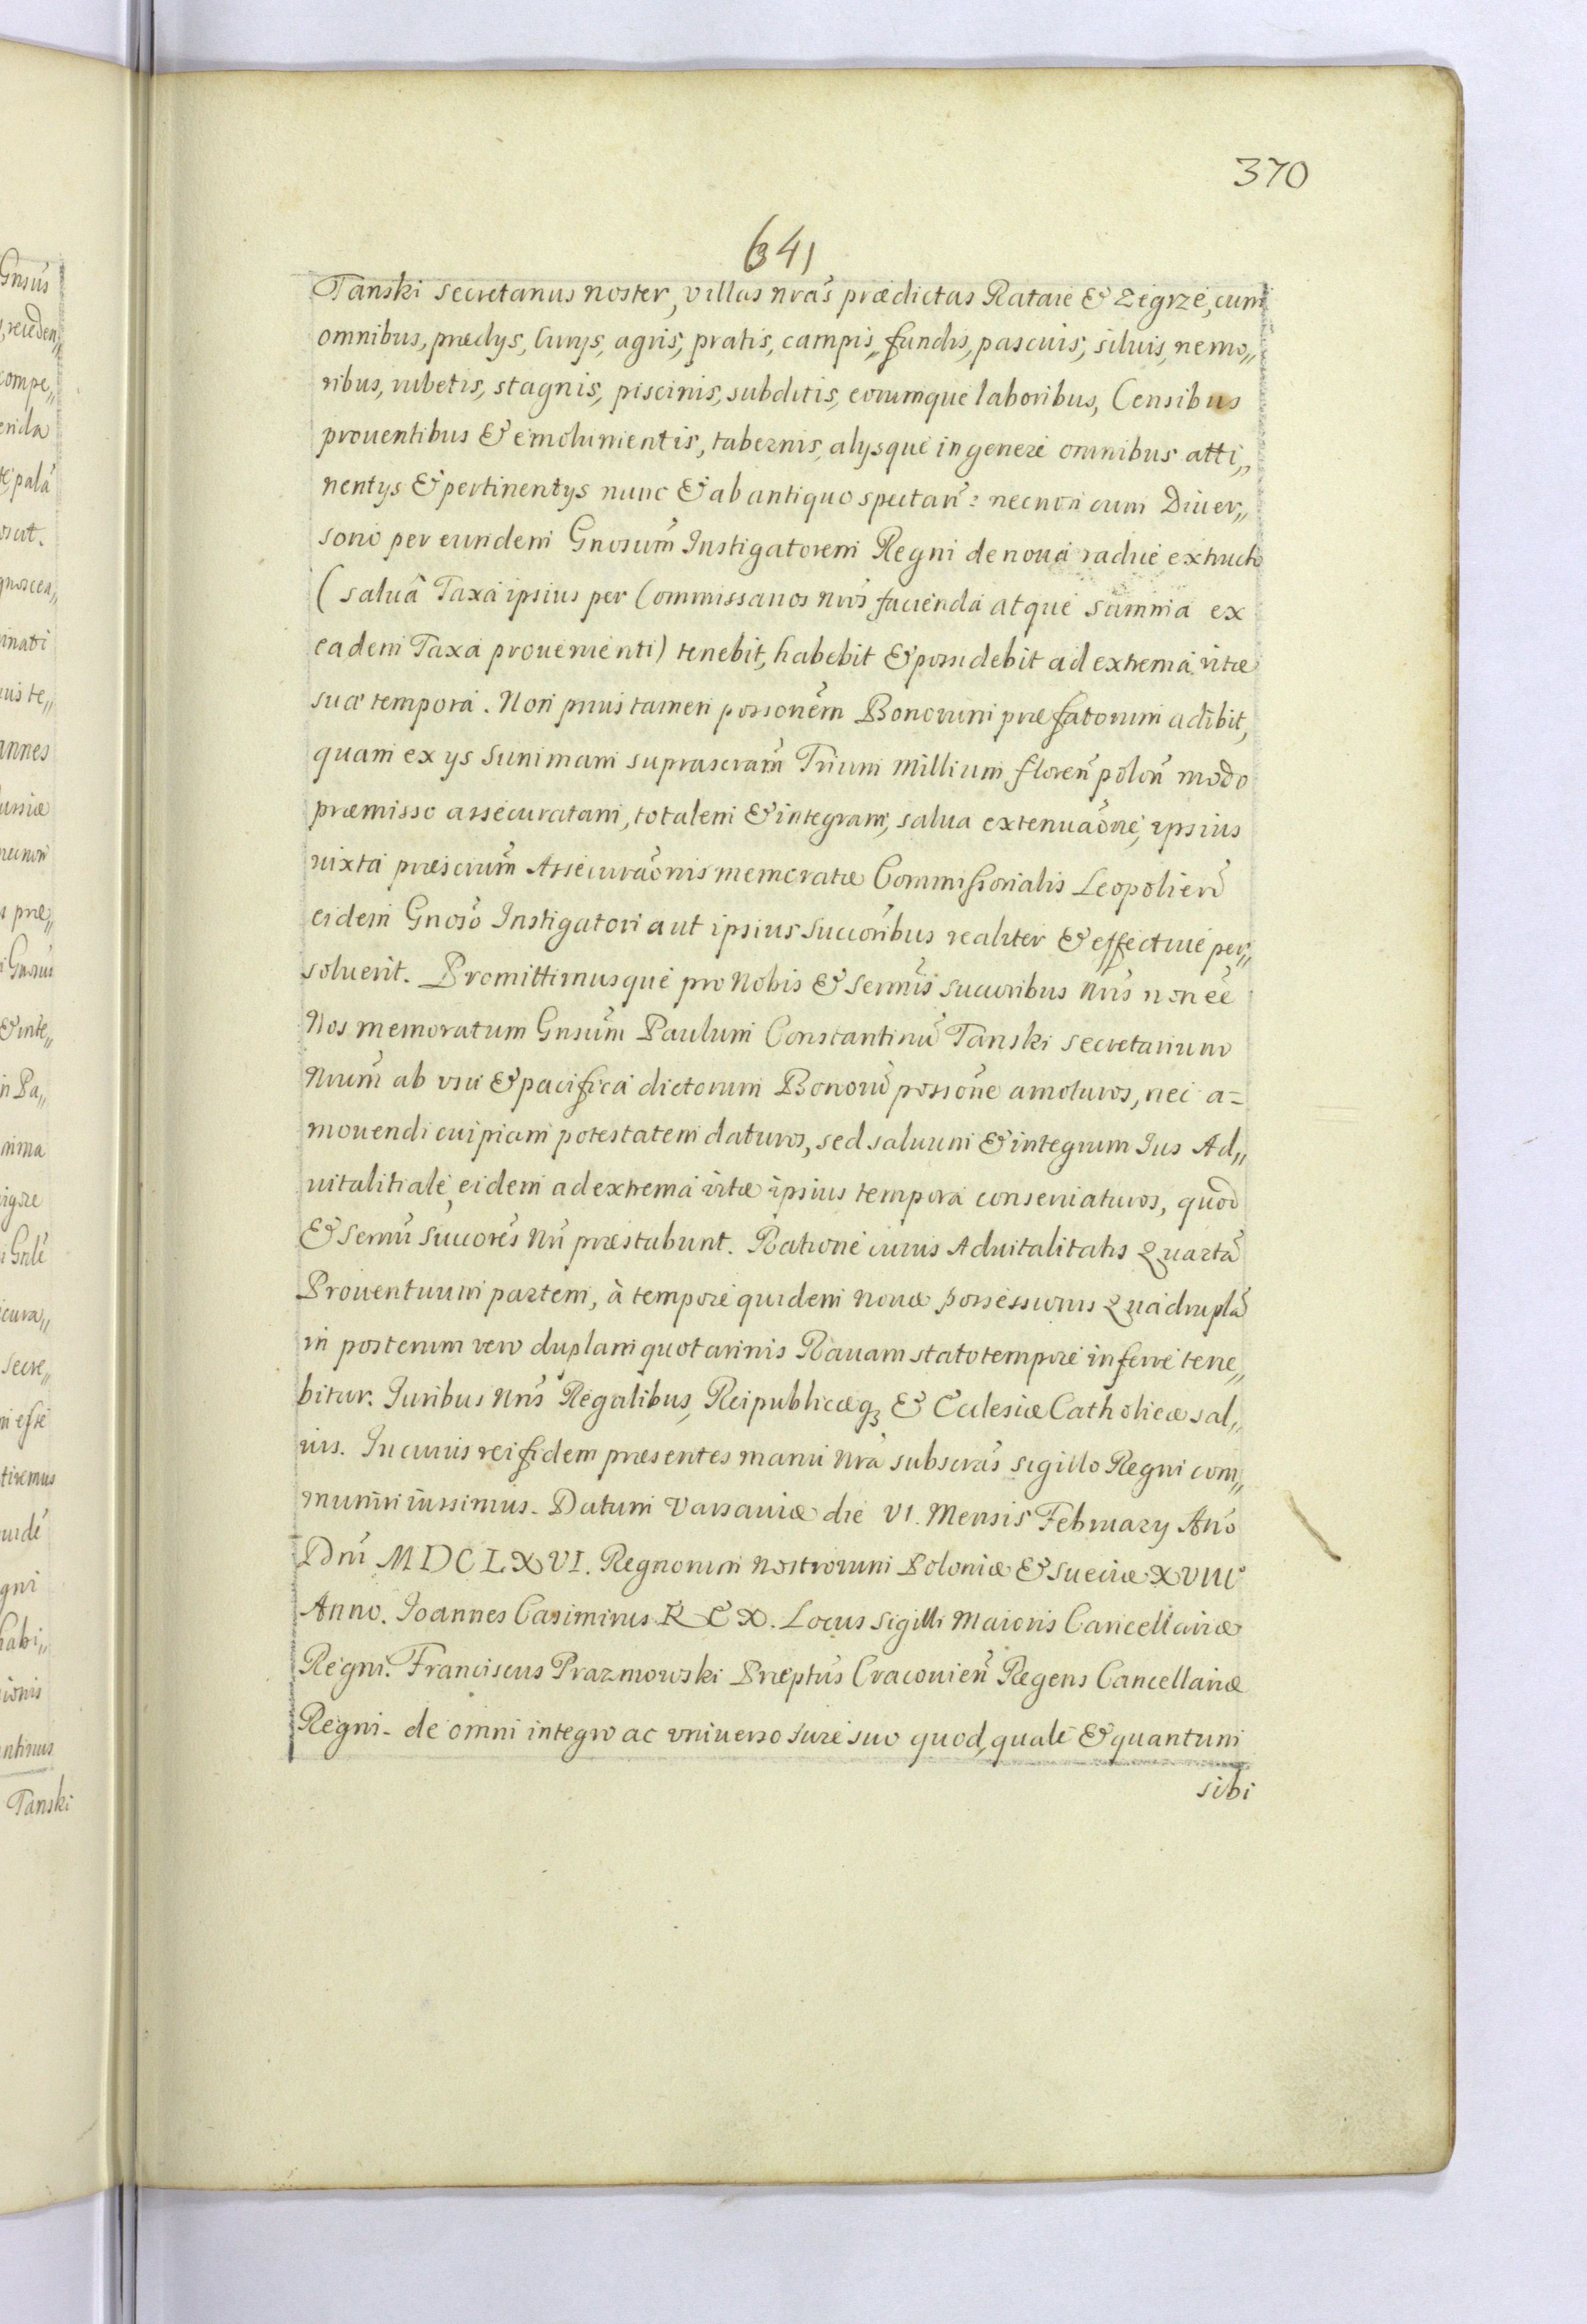 370
641
Tanski secretarius noster, villas nrãs prædictas Rataie & Zegrze, cum
omnibus, prædys, Curys, agris, pratis, campis,, fundis, pascuis, siluis, nemo,,
ribus, rubetis, stagnis, piscinis, subditis, eorumque laboribus, Censibus
prouentibus & emolumentis, tabernis, alysque in genere omnibus atti,,
nentys & pertinentys nunc & ab antiquo spectañ: necnon cum Diuer,,
sorio per eundem Gnosum Instigatorem Regni de noua radice extructo
(salua Taxa ipsius per Commissarios nros facienda atque summa ex
eadem Taxa prouenienti) tenebit, habebit & possidebit ad extrema vitæ
suæ tempora. Non prius tamen possonem Bonorum præfatorum adibit,
quam ex ys summam suprascram Trium Millium floreñ poloñ modo
præmisso assecuratam, totalem & integram, salua extenuaõne, ipsius
iuxta præscrum Assecuraõnis memoratæ Commissionalis Leopolieñ
eidem Gnoso Instigatori aut ipsius succoribus realiter & effectiue per,,
soluerit. Promittimusque pro Nobis & Sermis succoribus Nris non eē
Nos memoratum Gnsum Paulum Constantinū Tanski secretarium
Nrum ab vsu & pacifica dictorum Bonorū possone amoturos, nec a=
mouendi cuipiam potestatem daturos, sed saluum & integrum Ius Ad,,
uitalitiale eidem ad extrema vitæ ipsius tempora conseruaturos, quod
& Sermi succores Nri præstabunt. Ratione cuius Aduitalitatis Quartã
Prouentuum partem, à tempore quidem nouæ possessionis Quadruplã
in posterum vero duplam quotannis Rauam stato tempore inferre tene,,
bitur. Iuribus Nris Regalibus, Reipublicæq3 & Ecclesiæ Catholicæ sal,,
uis. In cuius rei fidem præsentes manu Nra subscras sigillo Regni com,,
muniri iussimus. Datum Varsauiæ die VI. Mensis February Año
Dni MDCLXVI. Regnorum nostrorum Poloniæ & Sueciæ XVIII
Anno. Ioannes Casimirus REX. Locus Sigilli Maioris Cancellariæ
Regni. Franciscus Prazmowski Præptus Cracouieñ Regens Cancellariæ
Regni. de omni integro ac vniuerso Iure suo quod, quale & quantum
sibi